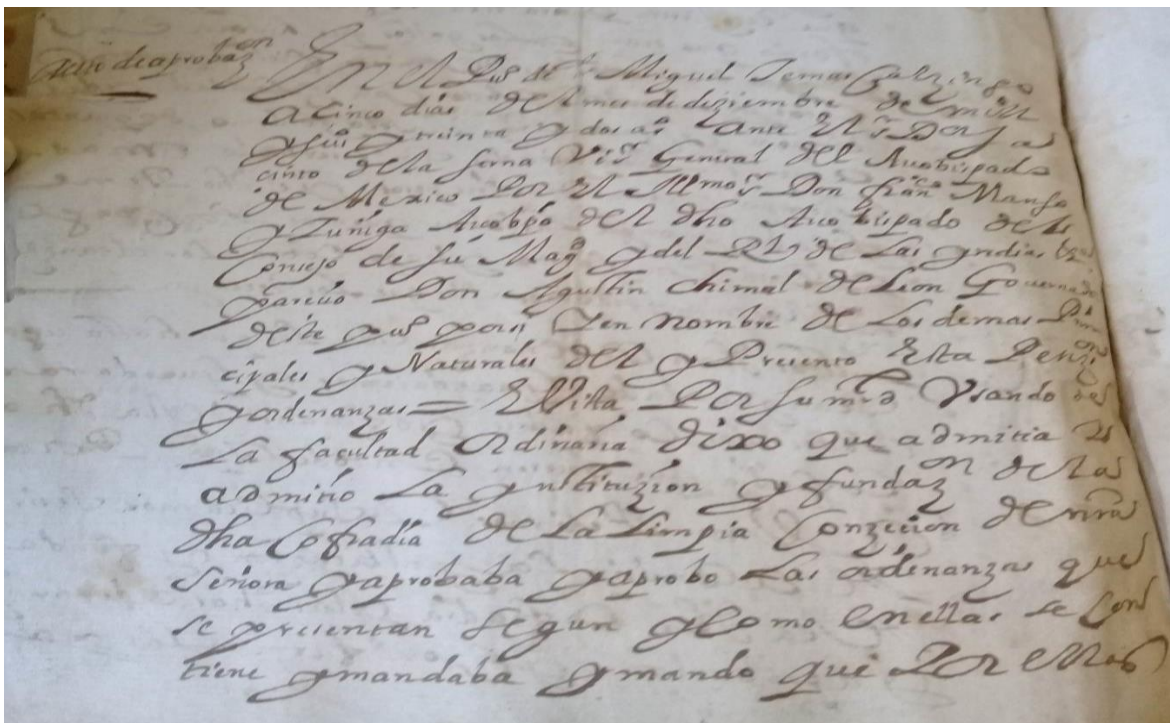 Auto de aprobaz.on
En el Pu.o de S. Miguel Temascalzingo
a cinco dias del mes de deziembre de mill
y seis.os y treinta y dos a.s ante el S.r D.or Ja
cinto de la serna Vi.o General del Arcobispado
de Mexico Por el Illmo S.r Don fran.co Manso
y Zuñiga Arcobpo del dho Arcobispado de el
Consejo de su Mag.d y del Rl de Las yndias
parecio Don Agustin Chimal de Leon Governador
deste pu.o por si y en nombre de Los demas Prin
cipales y Naturales del y Presento Esta Peti.on
y ordenanzas = E Vista Por su mrd Vsando de
La facultad ordinaria dixo que admitia y
admitio La ynstituzion y fundaz.on de la
dha Cofradia de La Limpia Conzecion de nra
Señora y aprobaba y aprobo Las ordenanzas que
se presentan segun y como en ellas se con
tiene y mandaba y mando que Por ellas